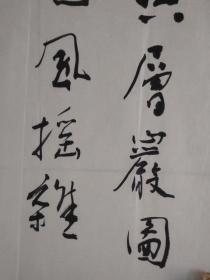 層巖圖
風摇雜